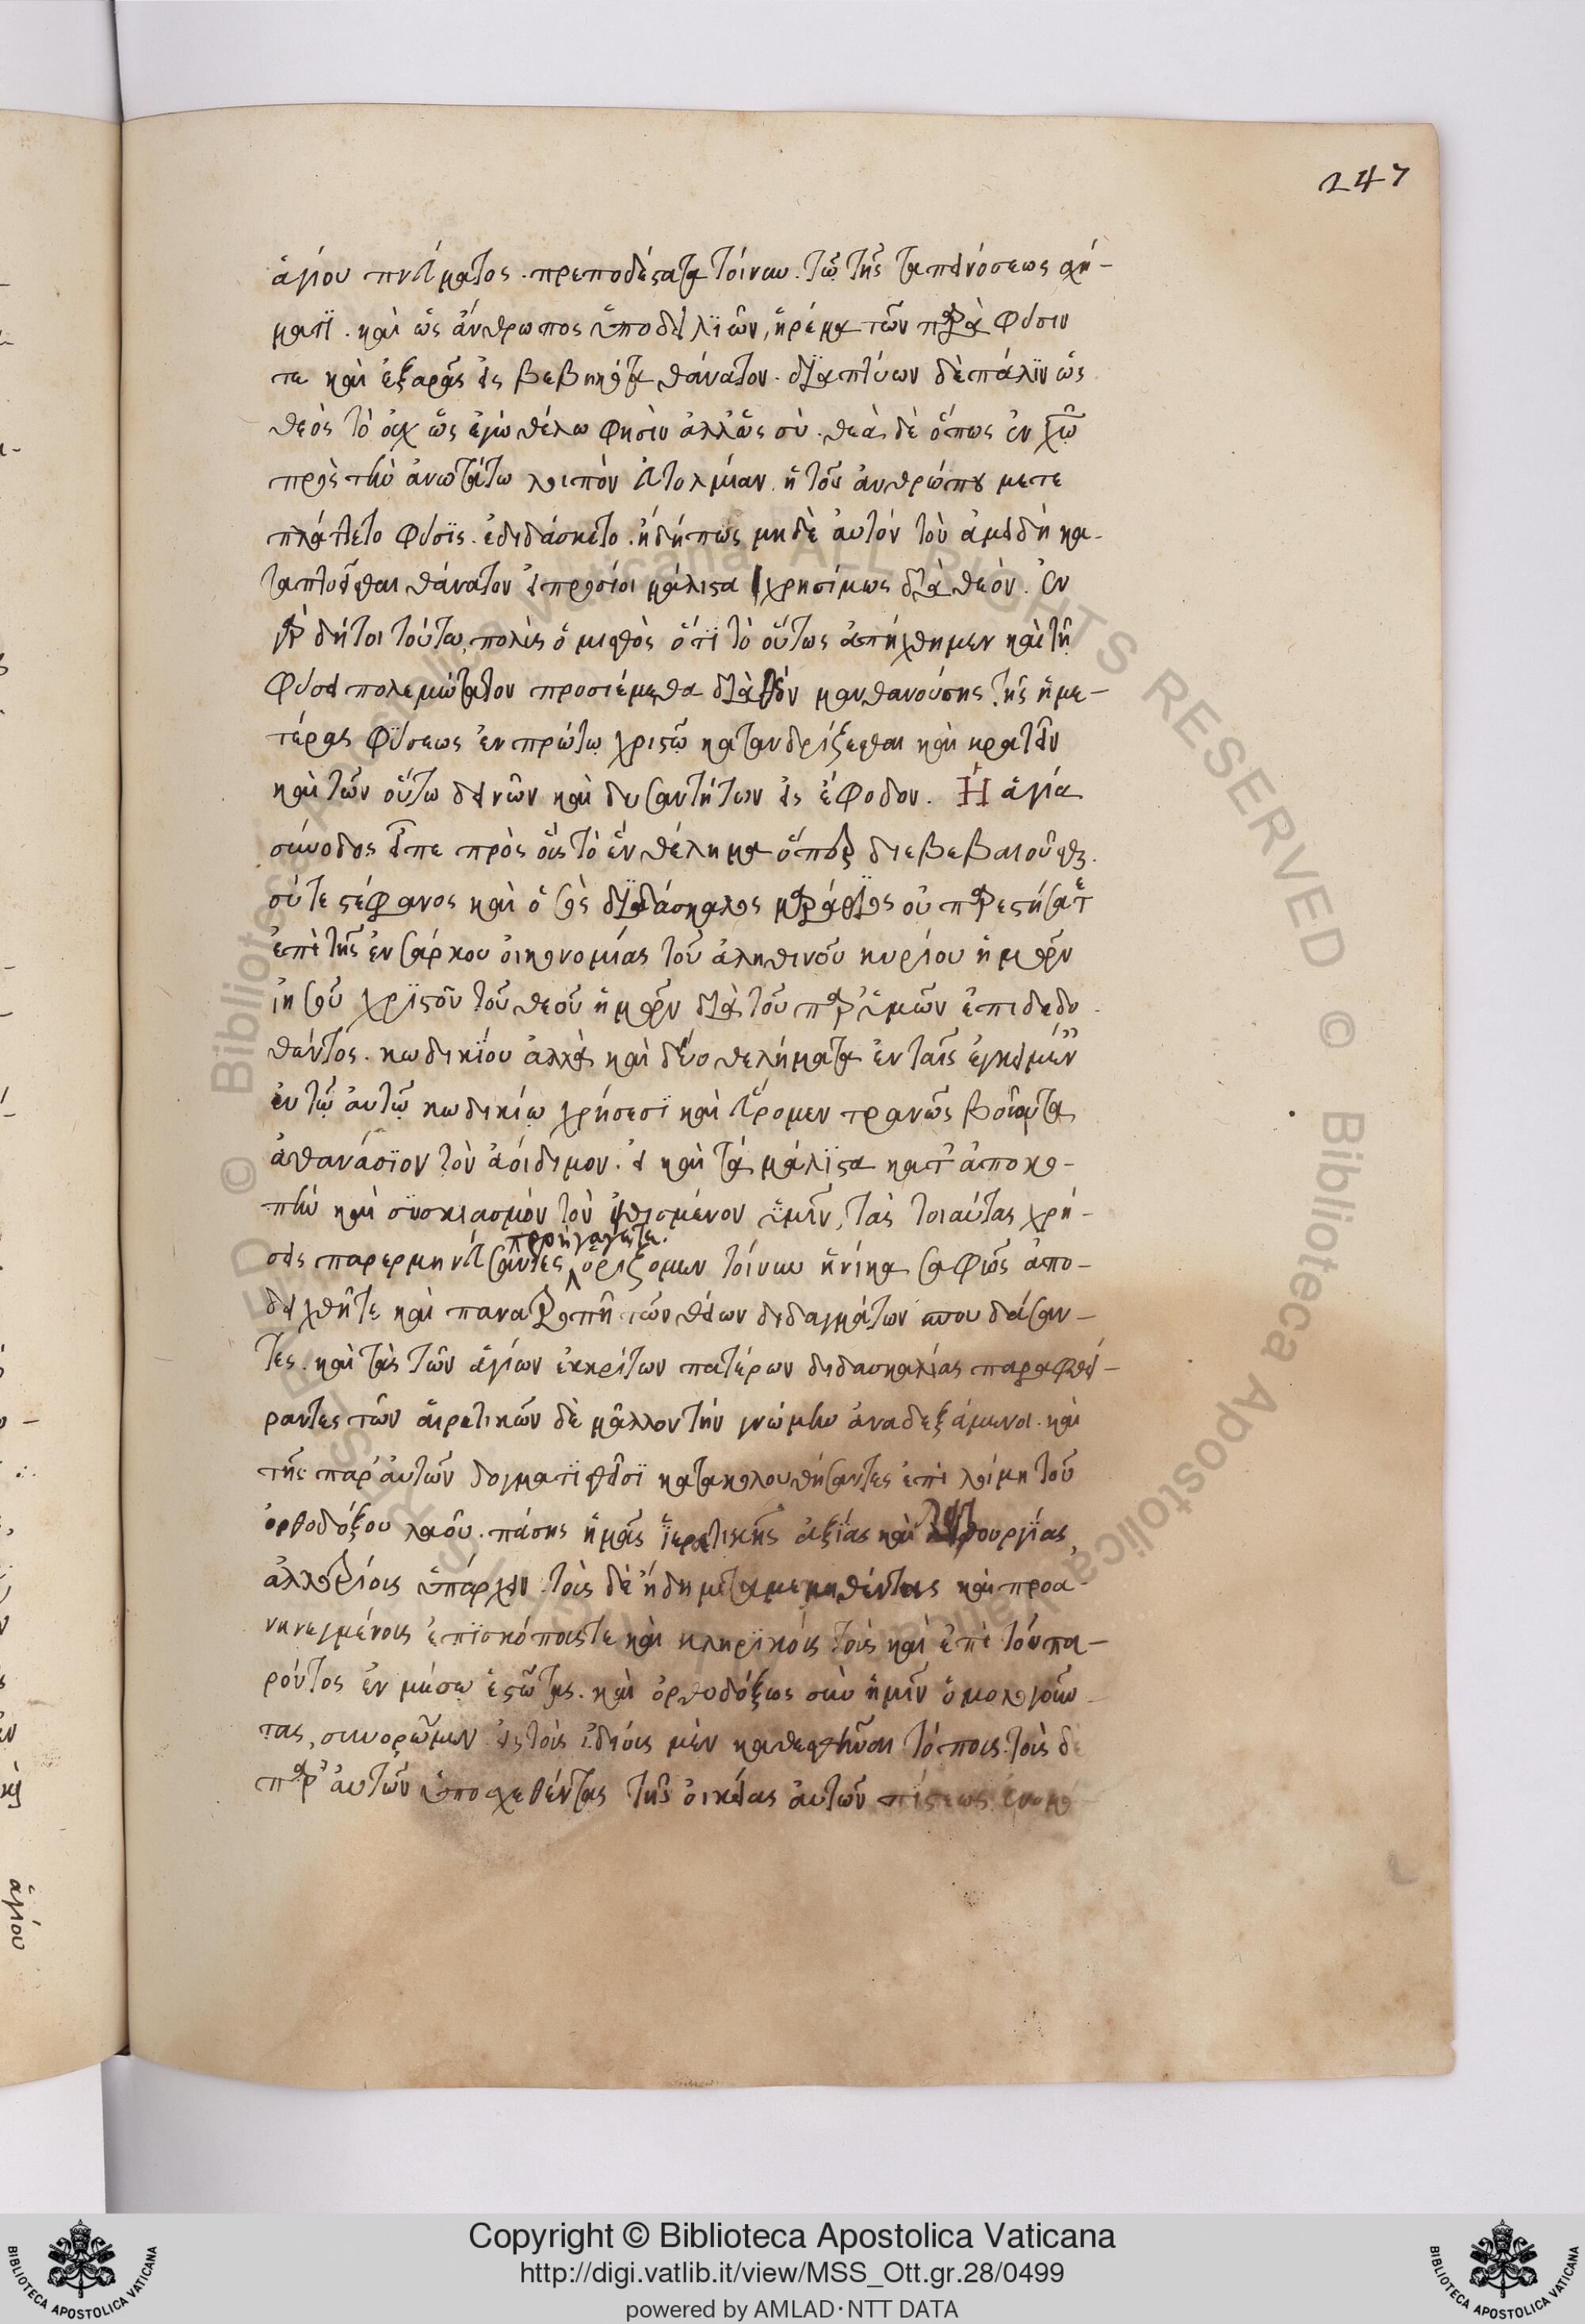 247
ἁγίου πνεύματος. πρεπωδέστατα τοίνυν. τῷ τῆς ταπεινόσεως σχή-
ματι. καὶ ὡς ἄνθρωπος ὑποδειλιῶν, ἠρέμα τῶν παρὰ φύσιν
τε καὶ ἐξ ἀρᾶς εἰς βεβηκότα θάνατον. διαπτύων δὲ πάλιν ὡς
θεὸς τὸ οὐχ ὡς ἐγὼ θέλω φησὶν ἀλλ' ὡς σύ. θέα δὲ ὅπως ἐν χῷ
πρὸς τὴν ἀνωτάτω λοιπὸν εὐτολμίαν. ἡ τοῦ ἀνθρώπου μετε
πλάττετο φύσις. ἐδιδάσκετο. ἠδήπως μηδὲ αὐτόν τὸν ἀμειδῆ κα-
ταπτοεῖσθαι θάνατον εἰ προσίοι μάλιστα χρησίμως διὰ θεόν. ἐν
γὰρ δήτοι τούτω, πολὺς ὁ μισθὸς ὅτι τὸ οὕτως ἀπήχθημεν καὶ τῇ
φύσει πολεμιώτατον προσιέμεθα διὰ θν μανθανούσης τῆς ἡμε-
τέρας φύσεως ἐν πρώτῳ χριστῷ κατανδρίζεσθαι καὶ κρατεῖν
καὶ τῶν οὕτω δεινῶν καὶ δυσαντήτων εἰς ἔφοδον. Ἡ ἁγία
σύνοδος εἶπε πρὸς οἷς τὸ ἓν θέλημα ὅπερ διεβεβαιοῦσθε.
σύ τε στέφανος καὶ ὁ σὸς διδάσκαλος μακάριος οὐ παρεστήσατε
ἐπὶ τῆς ἐνσάρκου οἰκονομίας τοῦ ἀληθινοῦ κυρίου ἡμῶν
ἰησοῦ χριστοῦ τοῦ θεοῦ ἡμῶν διὰ τοῦ παρ' ὑμῶν ἐπιδεδο
θέντος. κωδικίου ἀλλὰ καὶ δύο θελήματα ἐν ταῖς ἐγκειμέν
ἐν τῷ αὐτῷ κωδικίῳ χρήσεσι καὶ εὕρομεν τρανῶς βοῶντα
ἀθανάσιον τὸν ἀοίδιμον. εἰ καὶ τὰ μάλιστα κατ' ἀποκο-
πὴν καὶ συσκιασμὸν τὸν εἰθισμένον ὑμῖν, τὰς τοιαύτας χρή-
σεις παρερμηνεύσαντες προηγάγετε. ὁρίζομεν τοίνυν ἡνίκα σαφῶς ἀπο-
δειχθῆτε καὶ παρατροπῆ τῶν θείων διδαγμάτων σπουδάσαν-
τες. καὶ τὰς τῶν ἁγίων ἐκκρίτων πατέρων διδασκαλίας παραφθεί-
ραντες τῶν αἱρετικῶν δὲ μᾶλλον τὴν γνώμην ἀναδεξάμενοι. καὶ
τῆς παρ' αὐτῶν δογματισθεῖσι κατακολουθήσαντες ἐπὶ λοίμη τοῦ
ὀρθοδόξου λαοῦ. πάσης ἡμᾶς ἱερατικῆς ἀξίας καὶ λειτουργίας
ἀλλοτρίοις ὑπάρχειν. τοῖς δὲ ἤδη μεταμεληθέντας καὶ προα-
νηνεγμένοις ἐπισκόποις τε καὶ κληρικοῖς τοῖς καὶ ἐπὶ τοῦ πα-
ρόντος ἐν μέσῳ ἑστῶτας. καὶ ὀρθοδόξως σὺν ἡμῖν ὁμολογοῦν-
τας, συνορῶμεν εἰς τοῖς ἰδίοις μὲν καθεσθῆναι τόποις. τοῖς δὲ
παρ' αὐτῶν ὑποσχεθέντας τῆς οἰκείας αὐτῶν πίστεως
ἁγίου